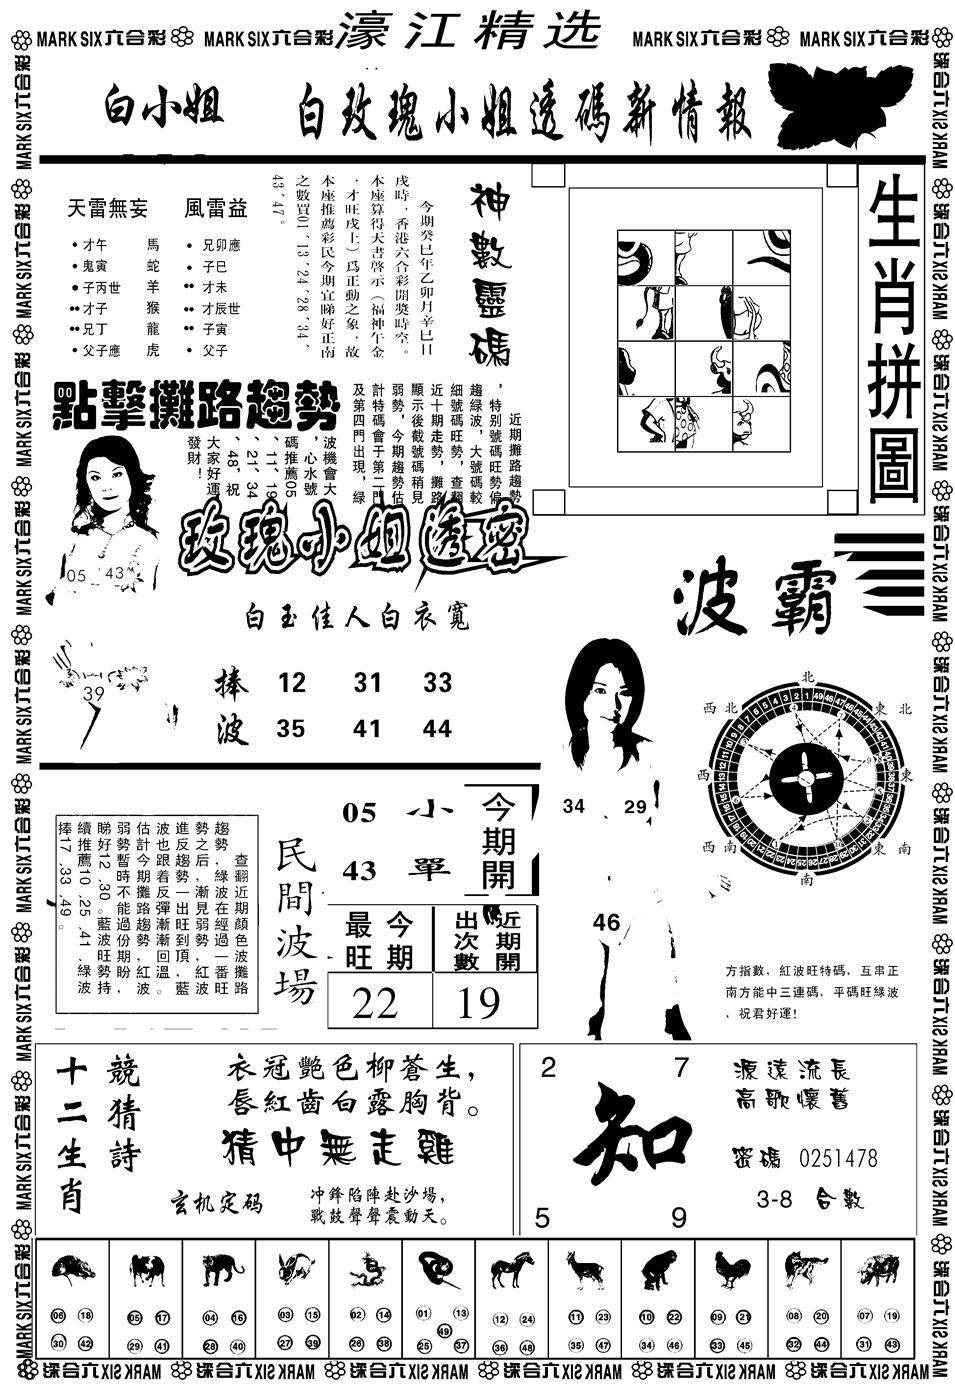 MARK SIX六合彩 MARK SIX六合彩 濠江精选 MARK SIX六合彩 MARK SIX六合彩
白小姐 白玫瑰小姐透碼新情報
天雷無妄 風雷益
•才午 馬 •兄卯應
•鬼寅 蛇 •子巳
•子丙世 羊 ••才未
••才子 猴 ••才辰世
••兄丁 龍 ••子寅
•父子應 虎 •父子
神數靈碼
今期癸巳年乙卯月辛巳日
戌時，香港六合彩開獎時空。
本座算得天書啓示（福神午金
，才旺戌上）爲正動之象，故
本座推薦彩民今期宜睇好正南
之數買01、13、24、28、34、
43、47。
生肖拼圖
點擊攤路趨勢
近期攤路趨勢
，特别號碼旺勢偏
趨綠波，大號碼較
細號碼旺勢，查翻
近十期走勢，攤路
顯示後截號碼稍見
弱勢，今期趨勢估
計特碼會于第二門
及第四門出現，綠
波機會大
，心水號
碼推薦05
、11、19
、21、34
、48，祝
大家好運
發財！
05 43
39
玫瑰小姐透密
白玉佳人白衣寬
捧 12 31 33
波 35 41 44
波霸
34 29
46
北
西北 東北
西 東
西南 東南
南
方指數，紅波旺特碼，互串正
南方能中三連碼，平碼旺綠波
，祝君好運！
查翻近期顔色波攤路
趨勢，綠波在經過一番旺
勢之后，漸見弱勢，紅波
進反趨勢一出旺到頂，藍
波也跟着反彈漸漸回溫。
估計今期攤路趨勢紅波
弱勢暫時不能過份期盼，
睇好12、30。藍波旺勢持
續推薦10、25、41、綠波
捧17、33、49。
民間波場
05 小
43 單
今期開
最旺 今期
出次數 近期開
22 19
十二生肖
競猜詩
衣冠艷色柳蒼生，
唇紅齒白露胸背。
猜中無走雞
玄机定码
冲鋒陷陣赴沙場，
戰鼓聲聲震動天。
2 7
知
5 9
源遠流長
高歌懷舊
密碼 0251478
3-8 合數
06 18 30 42
05 17 29 41
04 16 28 40
03 15 27 39
02 14 26 38
01 13 49 25 37
12 24 36 48
11 23 35 47
10 22 34 46
09 21 33 45
08 20 32 44
07 19 31 43